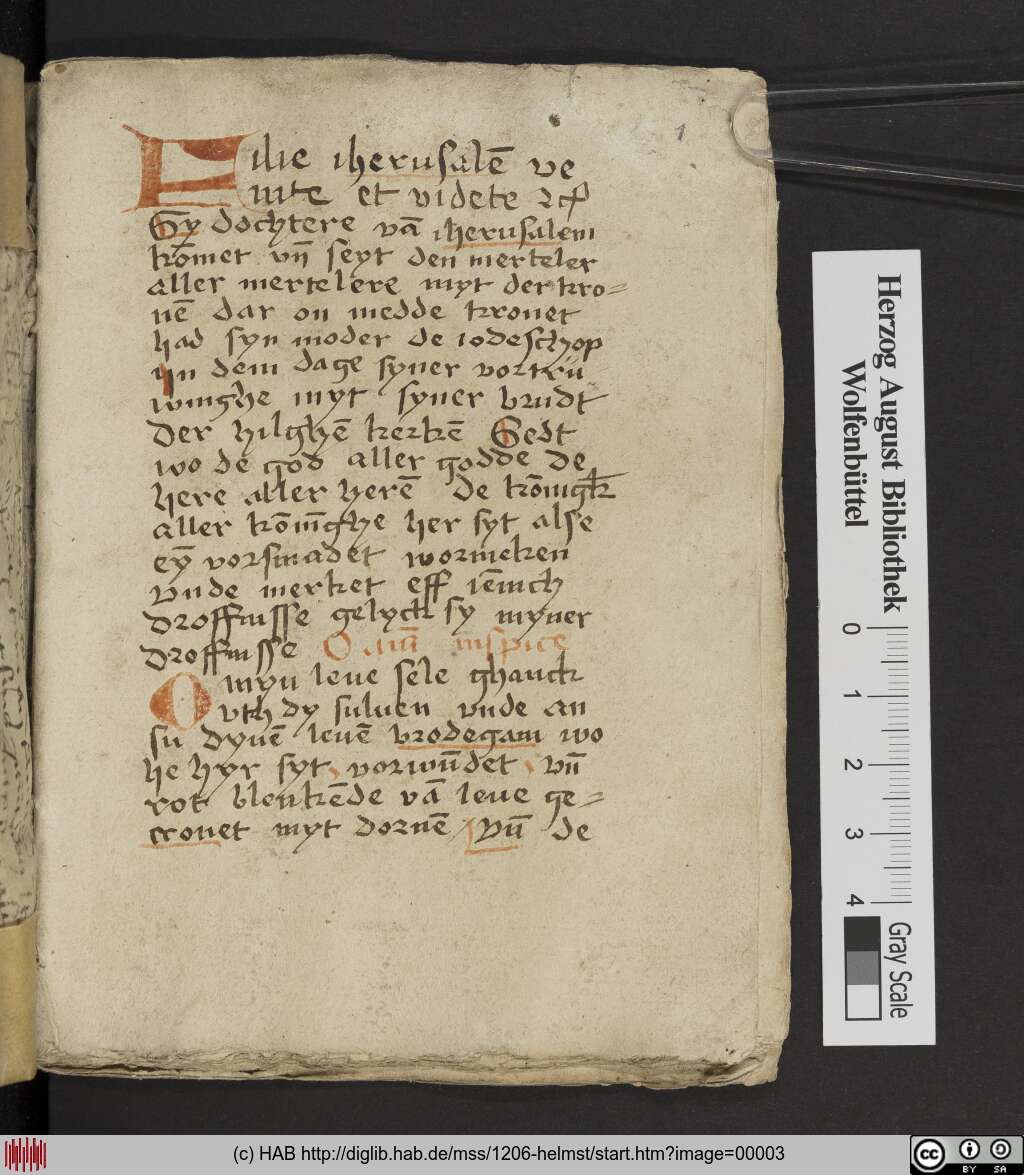 Filie iherusalē ve
nite et videte ⁊cͬ
Gy dochtere vā iherusalem
kōmet vn̄ seyt den merteler
aller mertelere myt der kro=
nē dar on medde kronet
had syn moder de iodeschop
yn dem dage syner vortru
winghe myt syner brudt
der hilghē kerkē Sedt
wo de god aller godde de
here aller herē de kōnigk
aller kōnīghe her syt alse
eȳ vorsmadet wormeken
vnde merket eff iēnich
droffnisse gelyck sy myner
droffnisse O aīa inspice
O myn leue sele ghanck
vth dy suluen vnde an
su dynē leuē brodegam wo
he hyr syt vorwūdet vn̄
rot blenkēde vā leue ge=
cronet myt dornē vn̄ de
1
Herzog August Bibliothek
Wolfenbüttel
0 1 2 3 4
Gray Scale
(c) HAB http://diglib.hab.de/mss/1206-helmst/start.htm?image=00003
cc BY SA